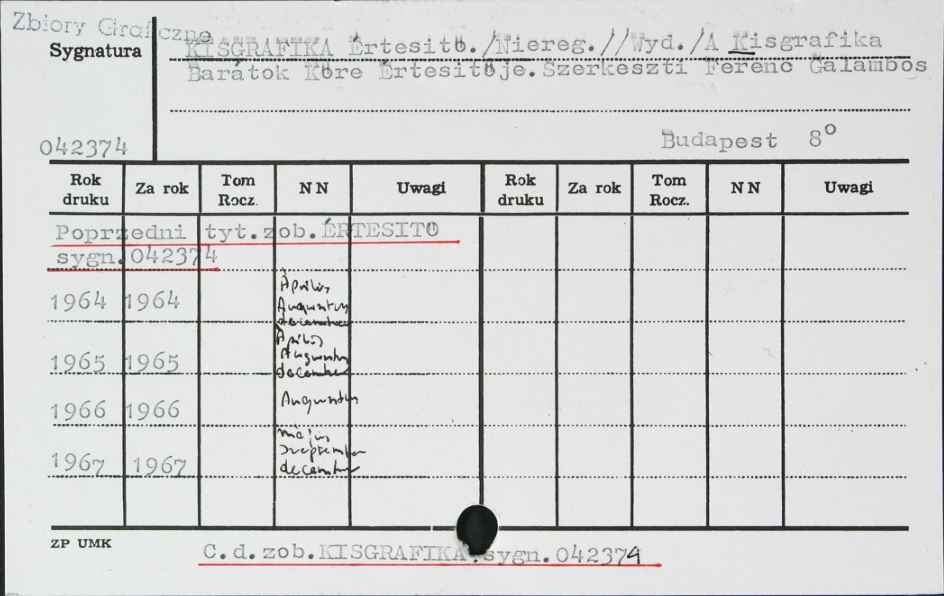 Zbiory Graficzne
Sygnatura
KISGRAFIKA Értesitő./Niereg.//Wyd./A Kisgrafika
Barátok Köre Értesitője.Szerkeszti Ferenc Galambos
042374
Budapest 8°
Rok druku Za rok Tom Rocz. NN Uwagi Rok druku Za rok Tom Rocz. NN Uwagi
Poprzedni tyt.zob.ÉRTESITŐ
sygn.042374
Április
1964 1964 Augusztus
december
Április
1965 1965 Augusztus
december
1966 1966 Augusztus
május
szeptember
1967 1967 december
ZP UMK
C.d.zob.KISGRAFIKA.sygn.042374